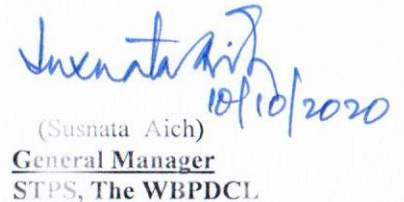 Susnata Aich
10/10/2020
(Susnata Aich)
General Manager
STPS, The WBPDCL